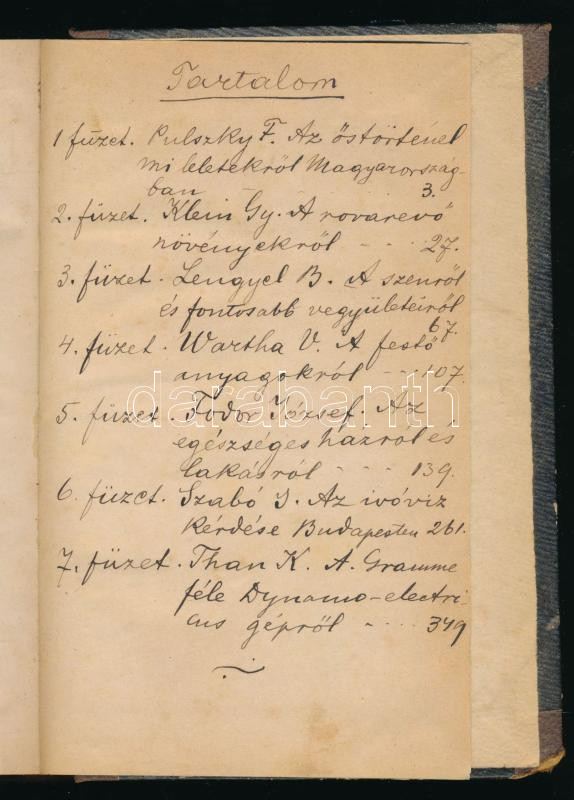 Tartalom
1 füzet. Pulszky F. Az őstörténel
mi leletekről Magyarország-
ban 3.
2. füzet. Klein Gy. A rovarevő
növényekről - - 27.
3. füzet. Lengyel B. A szenről
és fontosabb vegyületeiről
67.
4. füzet. Wartha V. A festő
anyagokról - - 107.
5. füzet. Fodor József. Az
egészséges házról és
lakásról - - - 139.
6. füzet. Szabó J. Az ivóviz
kérdése Budapesten 261.
7. füzet. Than K. A. Gramme
féle Dynamo-electri-
cus gépről - - - 349
darabanth